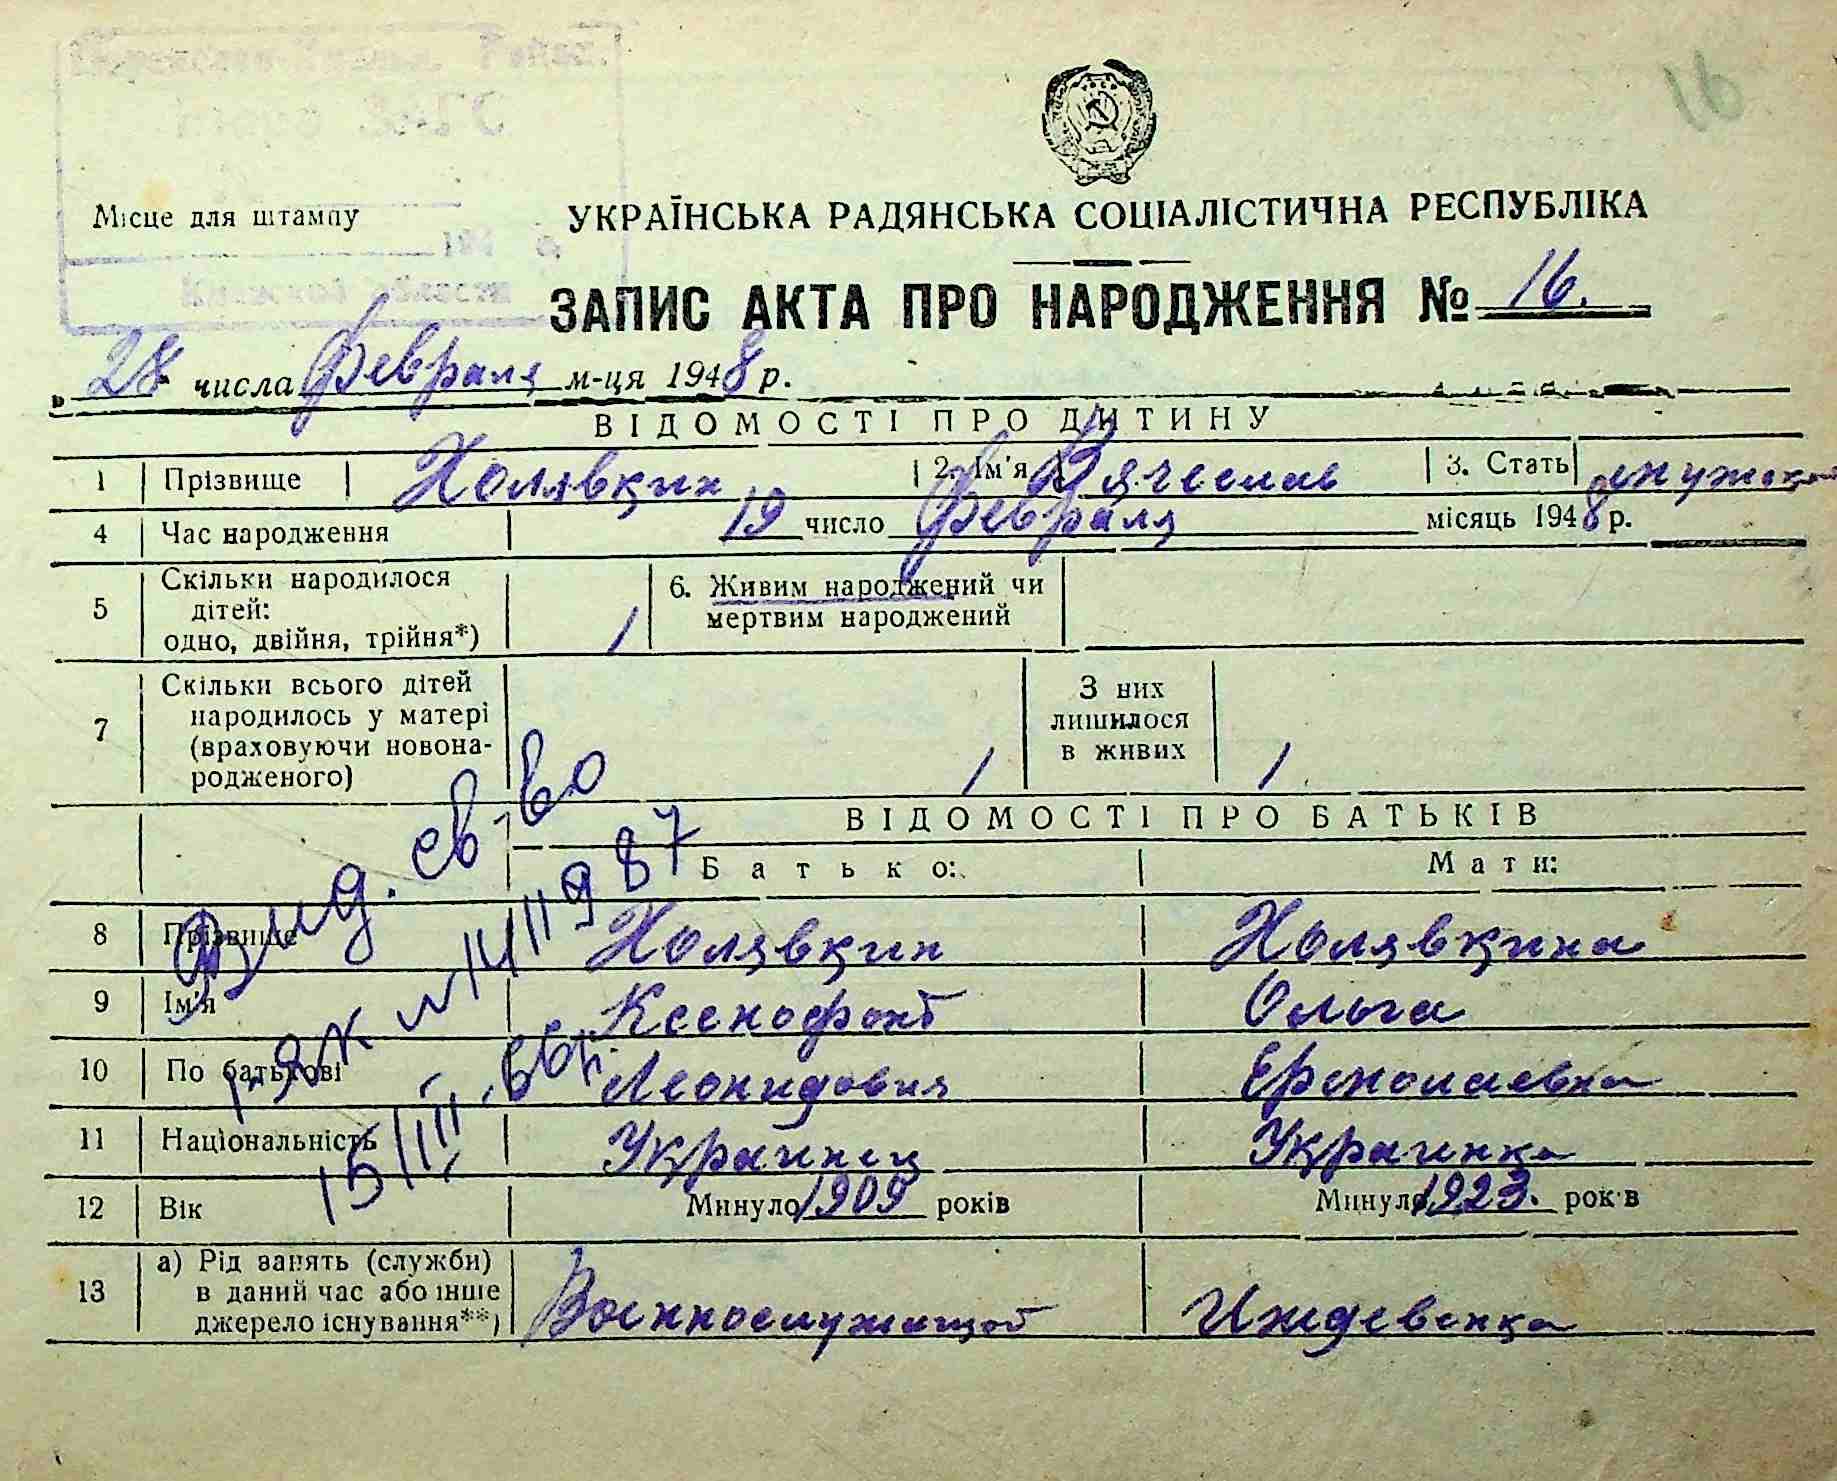 16
ЗАГС
Місце для штампу
194 р.
Киевской области
УКРАЇНСЬКА РАДЯНСЬКА СОЦІАЛІСТИЧНА РЕСПУБЛІКА
ЗАПИС АКТА ПРО НАРОДЖЕННЯ № 16.
28 числа Февраля м-ця 1948 р.
ВІДОМОСТІ ПРО ДИТИНУ
1 Прізвище Холявкин 2. Ім'я Вячеслав 3. Стать мужской
4 Час народження 19 число Февраля місяць 1948 р.
5 Скільки народилося дітей: одно, двійня, трійня*) 1 6. Живим народжений чи мертвим народжений
7 Скільки всього дітей народилось у матері (враховуючи новонародженого) 1 З них лишилося в живих 1
ВІДОМОСТІ ПРО БАТЬКІВ
Батько: Мати:
8 Прізвище Холявкин Холявкина
9 Ім'я Ксенофонт Ольга
10 По батькові Леонидович Ермолаевна
11 Національність Украинец Украинка
12 Вік Минуло 1909 років Минуло 1923. років
13 а) Рід занять (служби) в даний час або інше джерело існування**) Военнослужащий Иждевенка
Выд. св-во